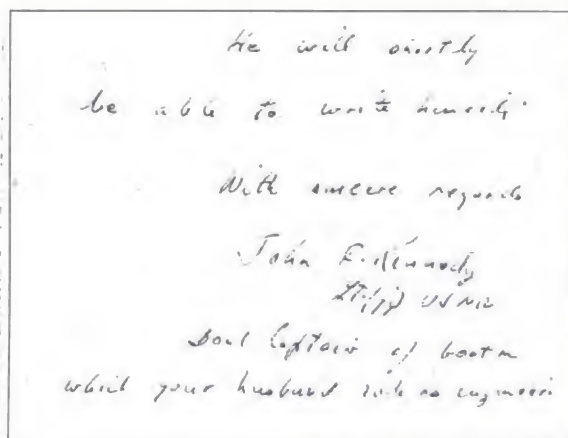 He will shortly
be able to write himself.
With sincere regards
John F. Kennedy
Lt. (jg) USNR
Captain of boat on
which your husband as engineer